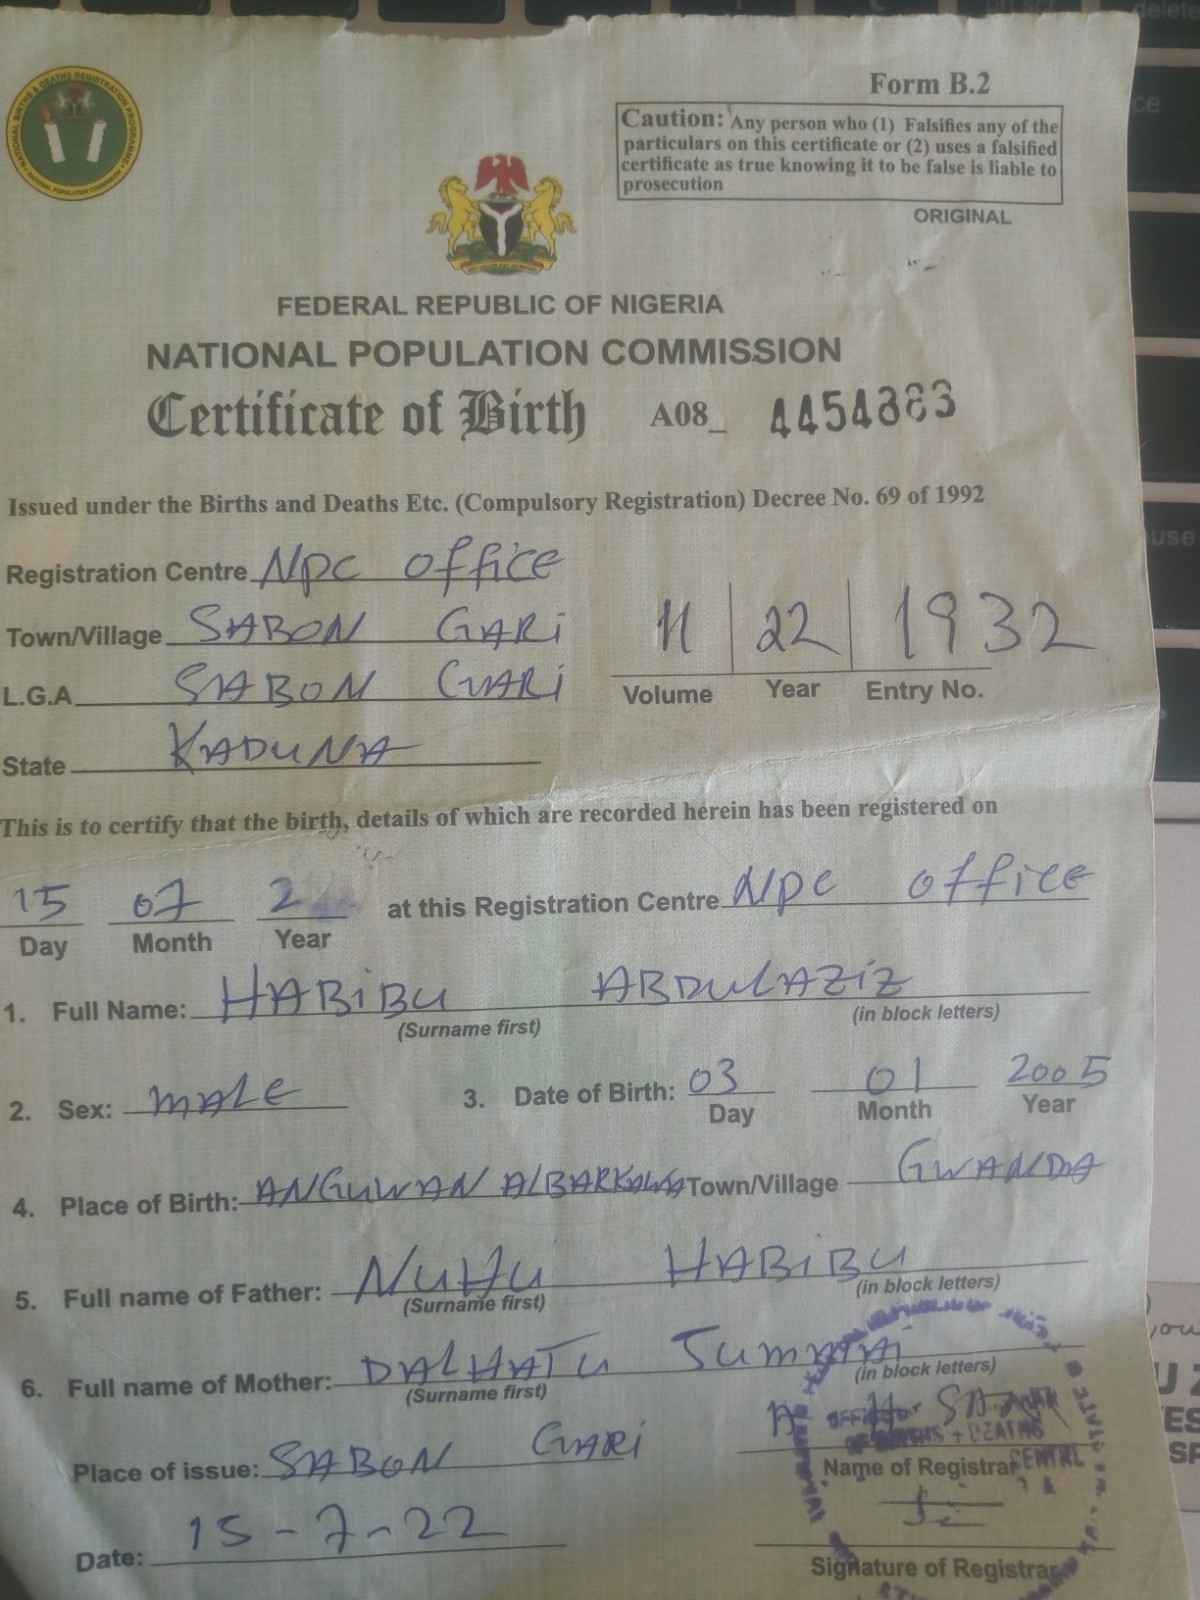 NATIONAL BIRTHS & DEATHS REGISTRATION PROGRAMME
NATIONAL POPULATION COMMISSION
Form B.2
Caution: Any person who (1) Falsifies any of the
particulars on this certificate or (2) uses a falsified
certificate as true knowing it to be false is liable to
prosecution
ORIGINAL
FEDERAL REPUBLIC OF NIGERIA
NATIONAL POPULATION COMMISSION
Certificate of Birth A08_ 4454883
Issued under the Births and Deaths Etc. (Compulsory Registration) Decree No. 69 of 1992
Registration Centre Npc office
Town/Village SABON GARi
L.G.A SABON GARi
11 22 1932
Volume Year Entry No.
State KADUNA
This is to certify that the birth, details of which are recorded herein has been registered on
15 07 2 at this Registration Centre Npc office
Day Month Year
1. Full Name: HABiBU ABDULAZiZ
(Surname first) (in block letters)
2. Sex: MALE 3. Date of Birth: 03 01 2005
Day Month Year
4. Place of Birth: ANGUWAN Town/Village GWANDA
5. Full name of Father: NUHU HABiBU
(Surname first) (in block letters)
6. Full name of Mother: DALHATU
(Surname first) (in block letters)
Place of issue: SABON GARi
Name of Registrar
Date: 15-7-22
Signature of Registrar
delete
use